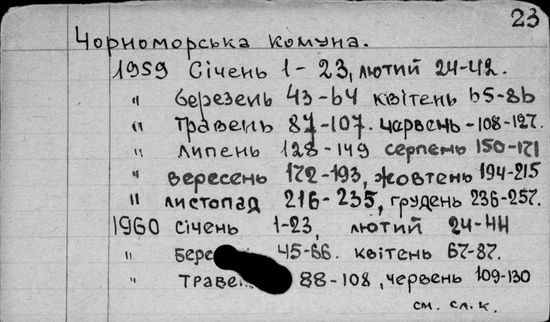 23
Чорноморська комуна.
1959 Січень 1-23, лютий 24-42.
" березень 43-64 квітень 65-86
" травень 87-107. червень -108-127.
" липень 128-149 серпень 150-171
" вересень 172-193, жовтень 194-215
" листопад 216-235, грудень 236-257.
1960 січень 1-23, лютий 24-44
" 45-66. квітень 67-87.
" 88-108, червень 109-130
см. сл. к.